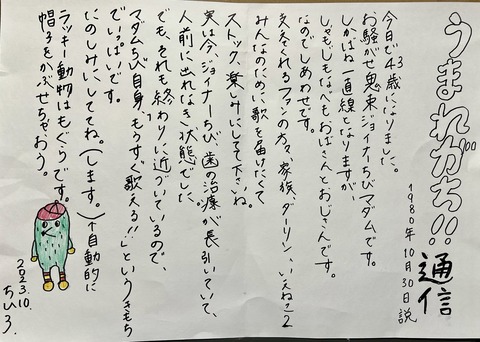 うまれがち!!通信
1980年10月30日説
今日で43歳になりました。
お騒がせ鬼束ジョイナーちびマダムです。
しかばね一直線となりますが、
しゃもじもなべもおばさんとおじさんです。
なのでしあわせです。
支えてくれるファンの方々、家族、ダーリン、いえねこ2
みんなのために歌を届けたくて
ストック、楽しみにして下さいね。
実は今ジョイナーちび、歯の治療が長引いていて、
人前に出れなき状態でした。
でも、それも終わりに近づいているので、
マダムちび自身、「もうすぐ歌える!!」というきもち
でいっぱいです。
たのしみにしててね。(します。)(↑自動的に
ラッキー動物はもぐらです。
帽子をかぶせちゃおう。
2023.10.
ちひろ.